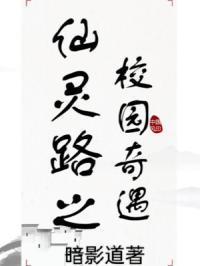 仙灵路之
校园奇遇
暗影道著